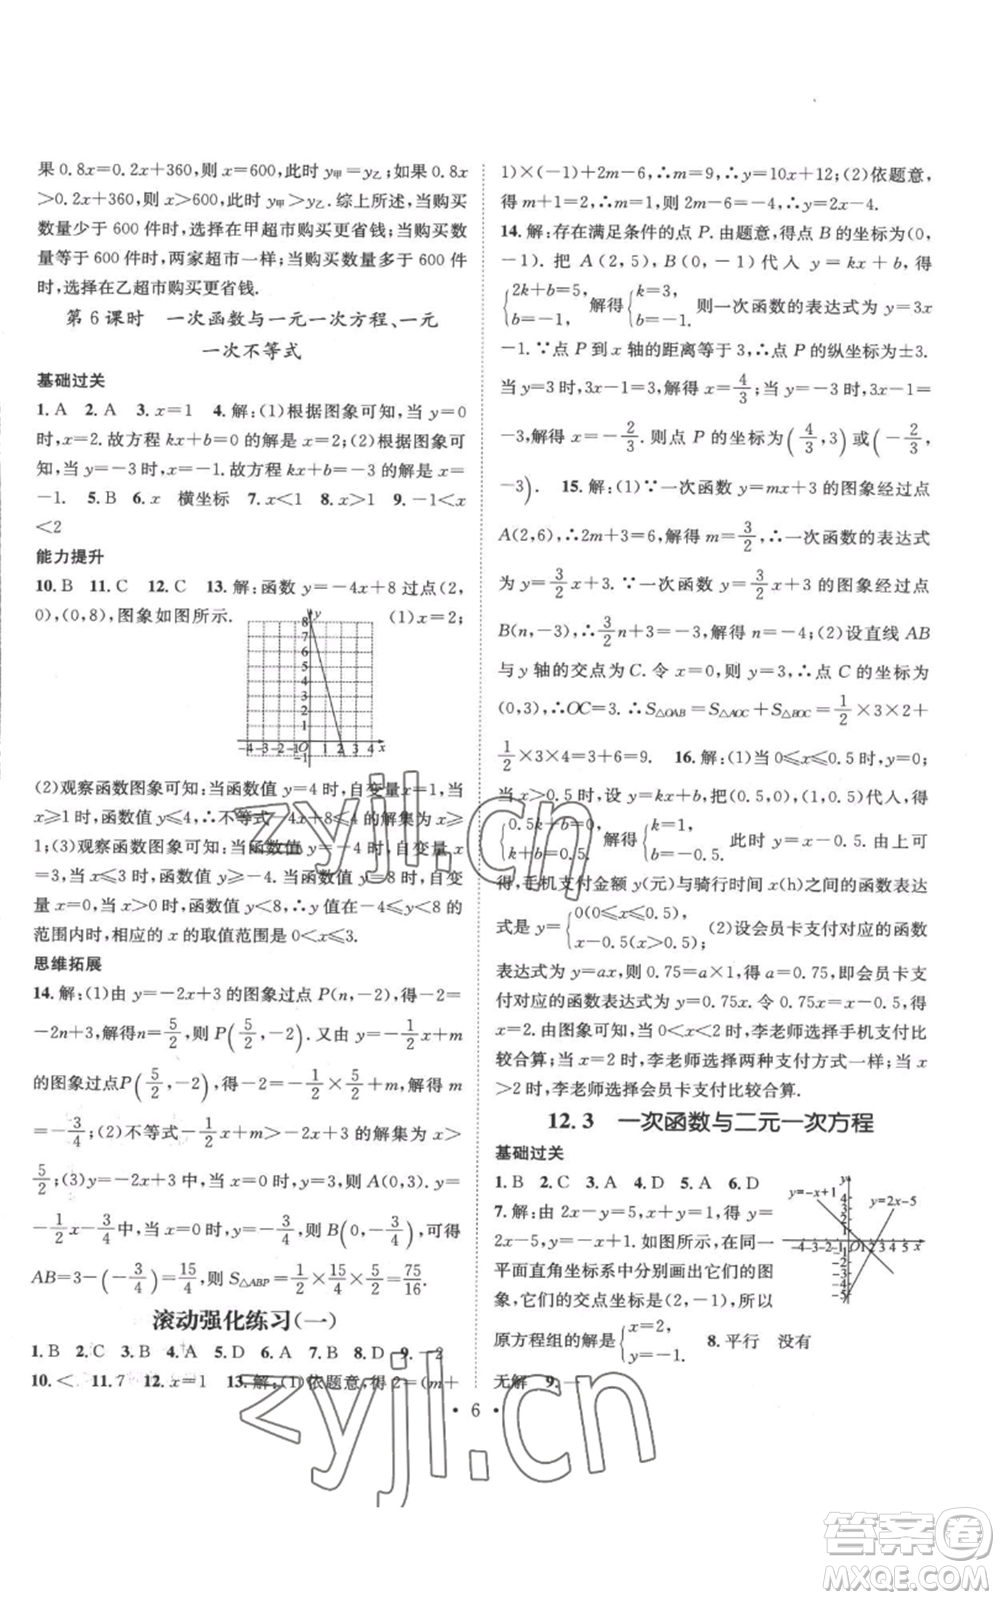 果 0.8x=0.2x+360,则 x=600,此时 y甲=y乙;如果 0.8x
>0.2x+360,则 x>600,此时 y甲>y乙.综上所述,当购买
数量少于 600 件时,在甲超市购买更省钱;当购买数
量等于 600 件时,两家超市一样;当购买数量多于 600 件
时,选择在乙超市购买更省钱.
第 6 课时 一次函数与一元一次方程、一元
一次不等式
基础过关
1. A 2. A 3. x=1 4. 解:(1)根据图象可知,当 y=0
时,x=2.故方程 kx+b=0 的解是 x=2;(2)根据图象可
知,当 y=-3 时,x=-1.故方程 kx+b=-3 的解是 x=
-1. 5. B 6. x 横坐标 7. x<1 8. x>1 9. -1<x
<2
能力提升
10. B 11. C 12. C 13. 解:函数 y=-4x+8 过点(2,
0),(0,8),图象如图所示. (1)x=2;
(2)观察函数图象可知:当函数值 y=4 时,自变量 x=1,当
x≥1 时,函数值 y≤4,∴不等式-4x+8≤4 的解集为 x≥
1;(3)观察函数图象可知:当函数值 y=-4 时,自变量 x
=3,当 x≤3 时,函数值 y≥-4.当函数值 y=8 时,自变
量 x=0,当 x>0 时,函数值 y<8,∴y 值在-4≤y<8 的
范围内时,相应的 x 的取值范围是 0<x≤3.
思维拓展
14. 解:(1)由 y=-2x+3 的图象过点 P(n,-2),得-2=
-2n+3,解得n=5/2,则 P(5/2,-2). 又由 y=-1/2x+m
的图象过点P(5/2,-2),得-2=-1/2×5/2+m,解得 m
=-3/4;(2)不等式-1/2x+m>-2x+3 的解集为 x>
5/2;(3)当 y=-2x+3 中,当 x=0 时,y=3,则 A(0,3).y=
-1/2x-3/4中,当 x=0 时,y=-3/4,则 B(0,-3/4),可得
AB=3-(-3/4)=15/4,则 S△ABP=1/2×15/4×5/2=75/16.
滚动强化练习(一)
1. B 2. C 3. B 4. A 5. D 6. A 7. B 8. D 9. -2
10. < 11. 7 12. x=1 13. 解:(1)依题意,得 2=(m+
1)×(-1)+2m-6,∴m=9,∴y=10x+12;(2)依题意,
得 m+1=2,得 m=1.则 2m-6=-4,∴y=2x-4.
14. 解:存在满足条件的点 P.由题意,得点 B 的坐标为(0,
-1). 把 A(2,5),B(0,-1)代入 y=kx+b,得
{2k+b=5, b=-1, 解得{k=3, b=-1. 则一次函数的表达式为 y=3x
-1.∵点 P 到 x 轴的距离等于 3,∴点 P 的纵坐标为±3.
当 y=3 时,3x-1=3,解得 x=4/3;当 y=-3 时,3x-1=
-3,解得 x=-2/3.则点 P 的坐标为(4/3,3)或(-2/3,
-3). 15. 解:(1)∵一次函数 y=mx+3 的图象经过点
A(2,6),∴2m+3=6,解得 m=3/2,∴一次函数的表达式
为 y=3/2x+3.∵一次函数 y=3/2x+3 的图象经过点
B(n,-3),∴3/2n+3=-3,解得 n=-4;(2)设直线 AB
与 y 轴的交点为 C.令 x=0,则 y=3,∴点 C 的坐标为
(0,3),∴OC=3.∴S△OAB=S△AOC+S△BOC=1/2×3×2+
1/2×3×4=3+6=9. 16. 解:(1)当 0≤x≤0.5 时,y=0.
当 x>0.5 时,设 y=kx+b,把(0.5,0),(1,0.5)代入,得
{0.5k+b=0, k+b=0.5, 解得{k=1, b=-0.5. 此时 y=x-0.5. 由上可
得,手机支付金额 y(元)与骑行时间 x(h)之间的函数表达
式是 y={0(0≤x≤0.5), x-0.5(x>0.5);(2)设会员卡支付对应的函数
表达式为 y=ax,则 0.75=a×1,得 a=0.75,即会员卡支
付对应的函数表达式为 y=0.75x.令 0.75x=x-0.5,得
x=2.由图象可知,当 0<x<2 时,李老师选择手机支付比
较合算;当 x=2 时,李老师选择两种支付方式一样;当 x
>2时,李老师选择会员卡支付比较合算.
12.3 一次函数与二元一次方程
基础过关
1. B 2. C 3. B 4. D 5. A 6. D
7. 解:由 2x-y=5,得 y=
2x-5,图象如图所示,在同一
平面直角坐标系中分别画出它们的图
象,它们的交点坐标是(2,-1),所以
原方程组的解是{x=2, y=-1. 8. 平行 没有
无解 9.
y=-x+1
y=2x-5
· 6 ·
zyjl.cn
zyjl.cn
答案卷
MXQE.COM